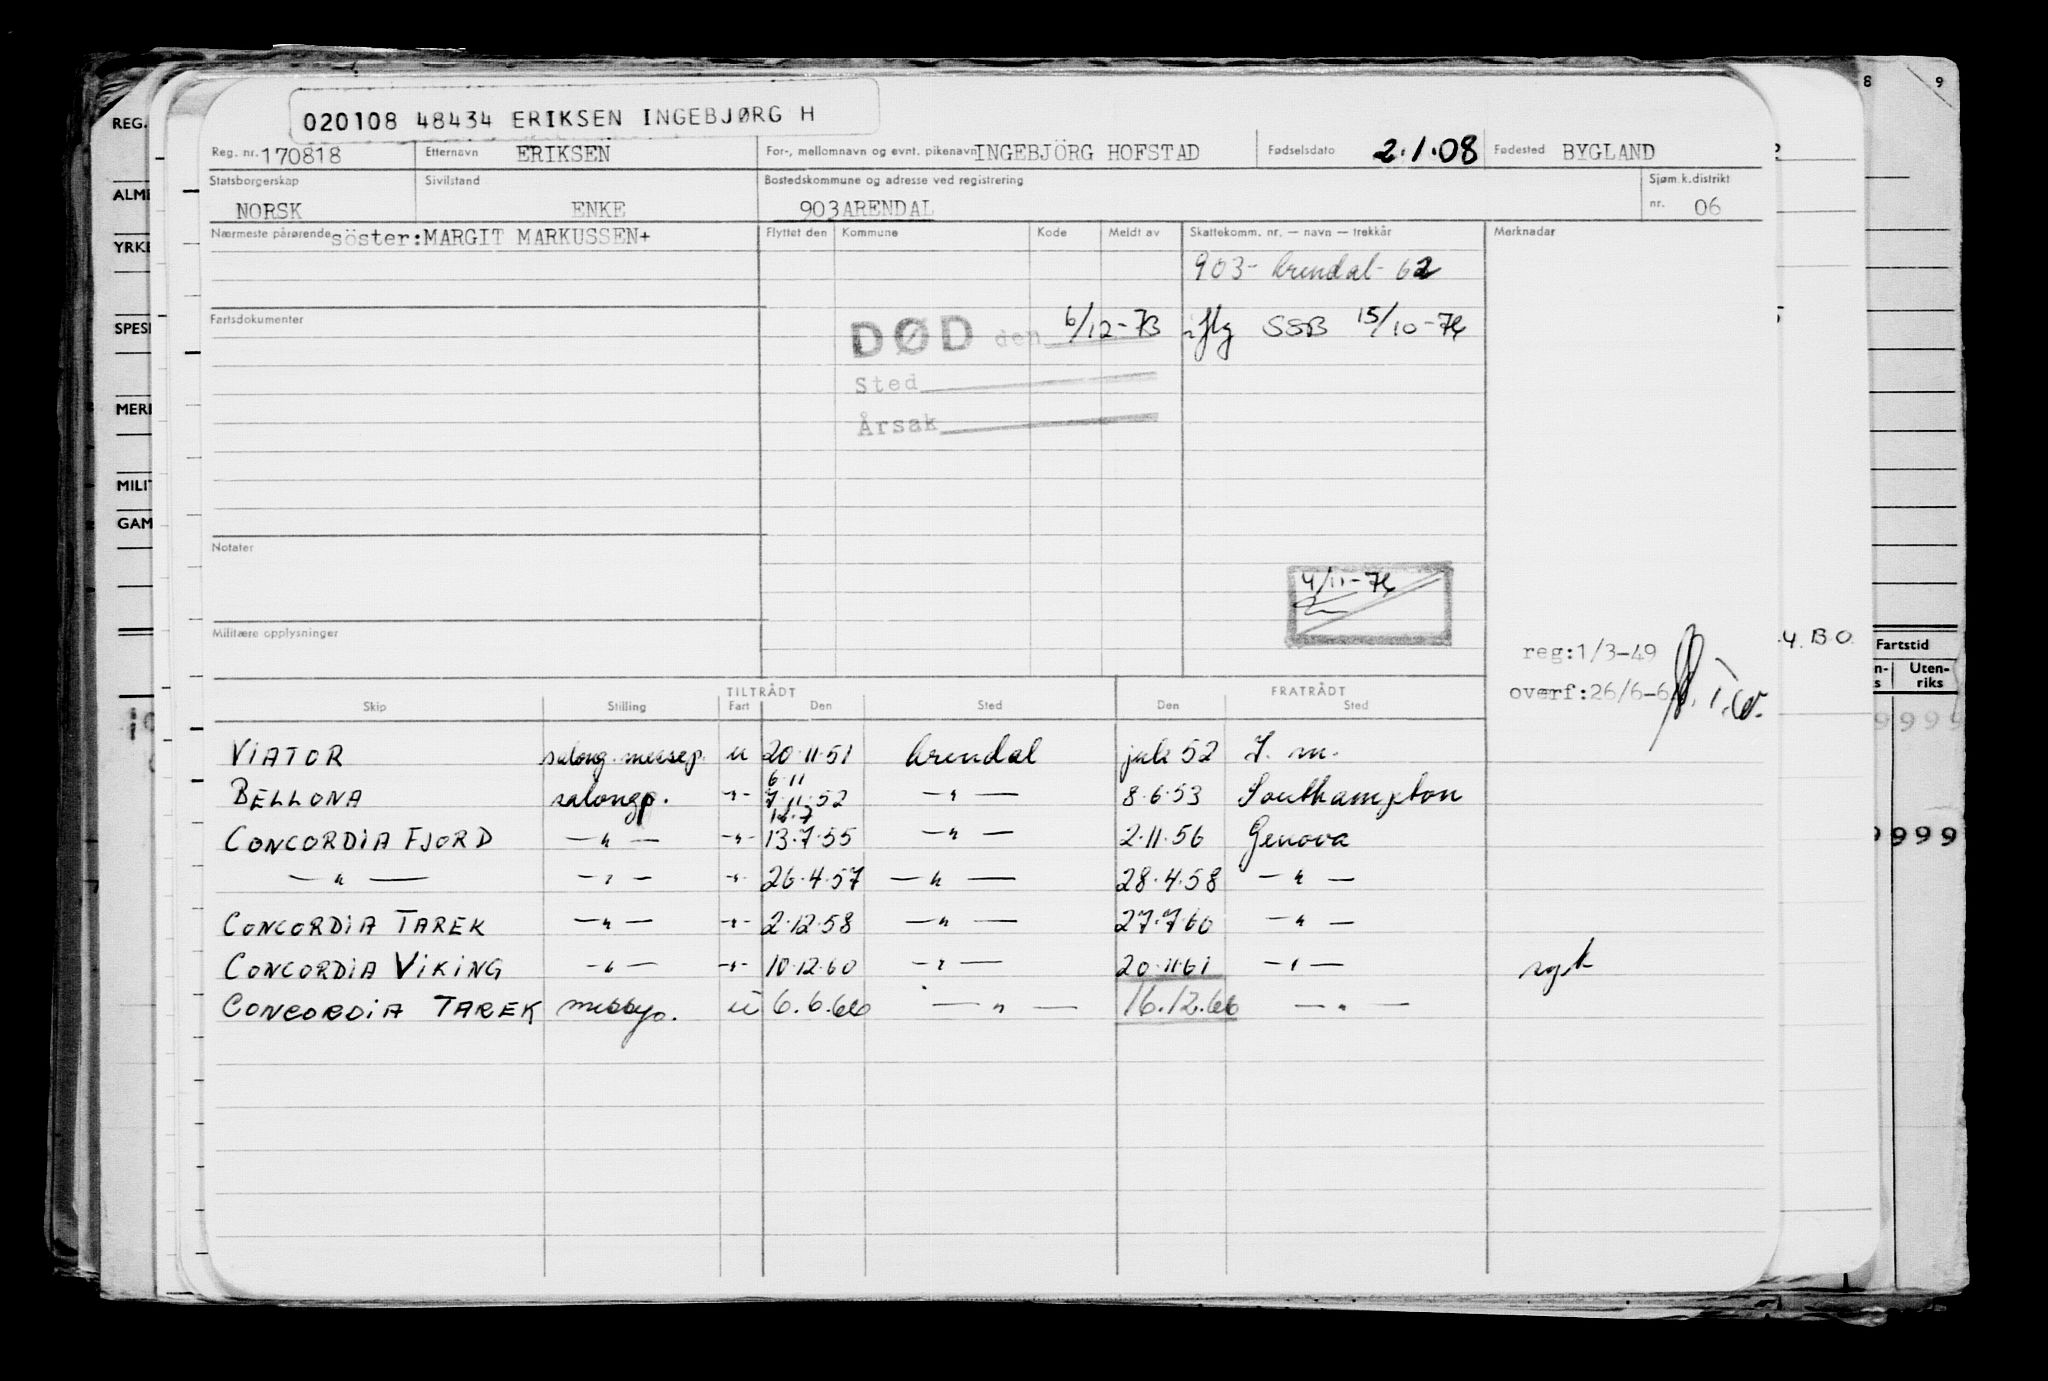 020108 48434 ERIKSEN INGEBJØRG H
Reg. nr. 170818 Etternavn ERIKSEN For-, mellomnavn og evnt. pikenavn INGEBJÖRG HOFSTAD Fødselsdato 2.1.08 Fødested BYGLAND
Statsborgerskap Sivilstand Bostedskommune og adresse ved registrering Sjøm.k.distrikt
NORSK ENKE 903 ARENDAL nr. 06
Nærmeste pårørende söster: MARGIT MARKUSSEN+ Flyttet den Kommune Kode Meldt av Skattekomm. nr. — navn — trekkår Merknadar
903- Arendal- 62
Fartsdokumenter
DØD den 6/12-73 iflg SSB 15/10-74
Sted
Årsak
Notater
4/11-74
Militære opplysninger
reg:1/3-49
overf:26/6-6
TILTRÅDT FRATRÅDT
Skip Stilling Fart Den Sted Den Sted
VIATOR salong.messep. u 20.11.51 Arendal juli 52 I. m.
6.11
BELLONA salongp. -"- 7.11.52 — " — 8.6.53 Southampton
12.7
CONCORDIA FJORD — " — -"- 13.7.55 — " — 2.11.56 Genova
— " — — " — -"- 26.4.57 — " — 28.4.58 — " —
CONCORDIA TAREK — " — -"- 2.12.58 — " — 27.7.60 — " —
CONCORDIA VIKING — " — -"- 10.12.60 — " — 20.11.61 — " — syk
CONCORDIA TAREK messep. u 6.6.66 — " — 16.12.66 — " —
REG.
ALME
YRKE
SPESI
MERI
MILIT
GAM
8 9
4. B O.
Fartstid
Uten-
riks
9999
9999